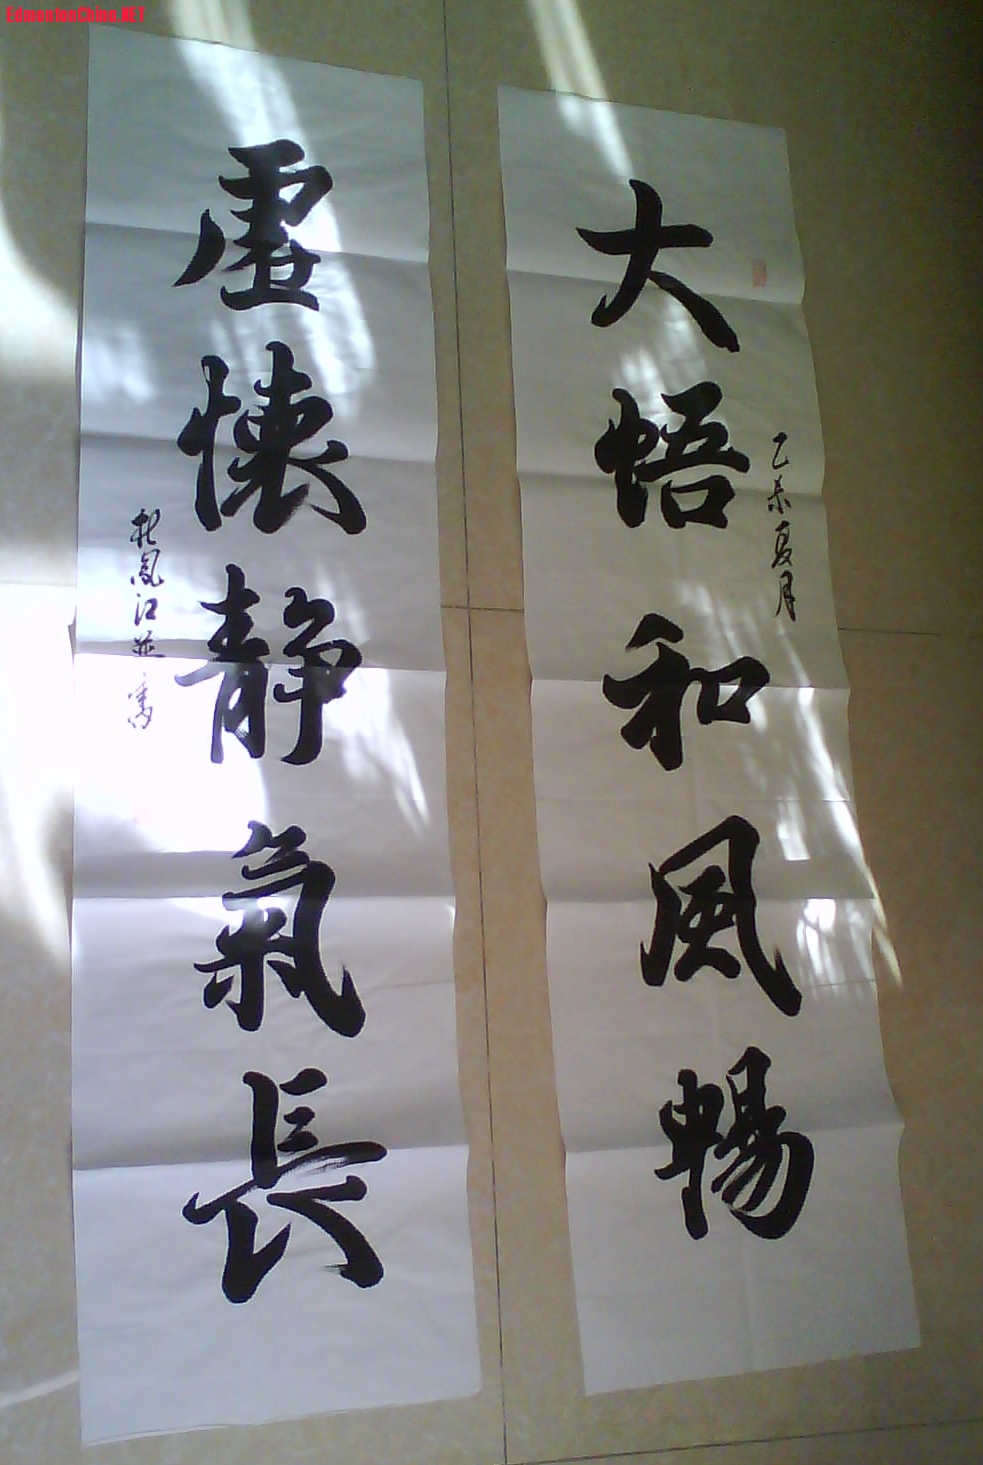 EdmontonChina.NET
大悟和風暢
乙未夏月
虛懷靜氣長